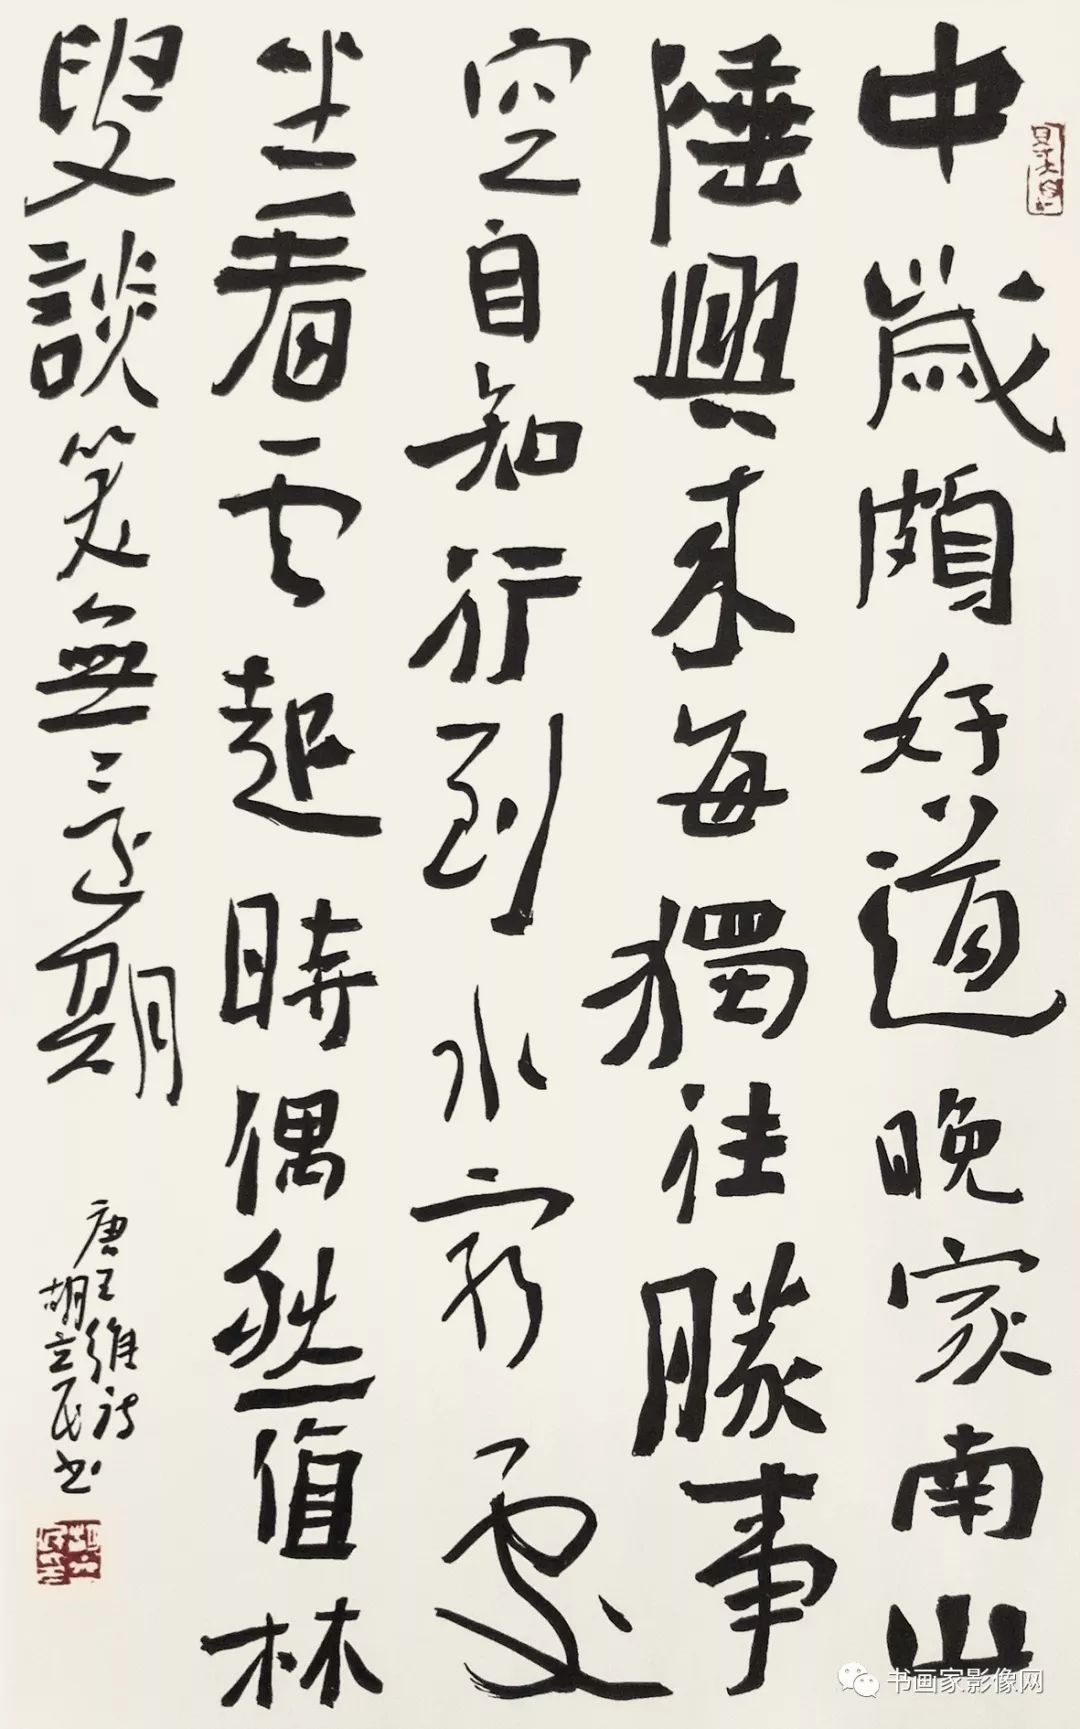 中歲頗好道晚家南山
陲興来每獨往勝事
空自知行到水窮處
坐看雲起時偶然值林
叟談笑無還期
唐王維詩
胡立民书
书画家影像网